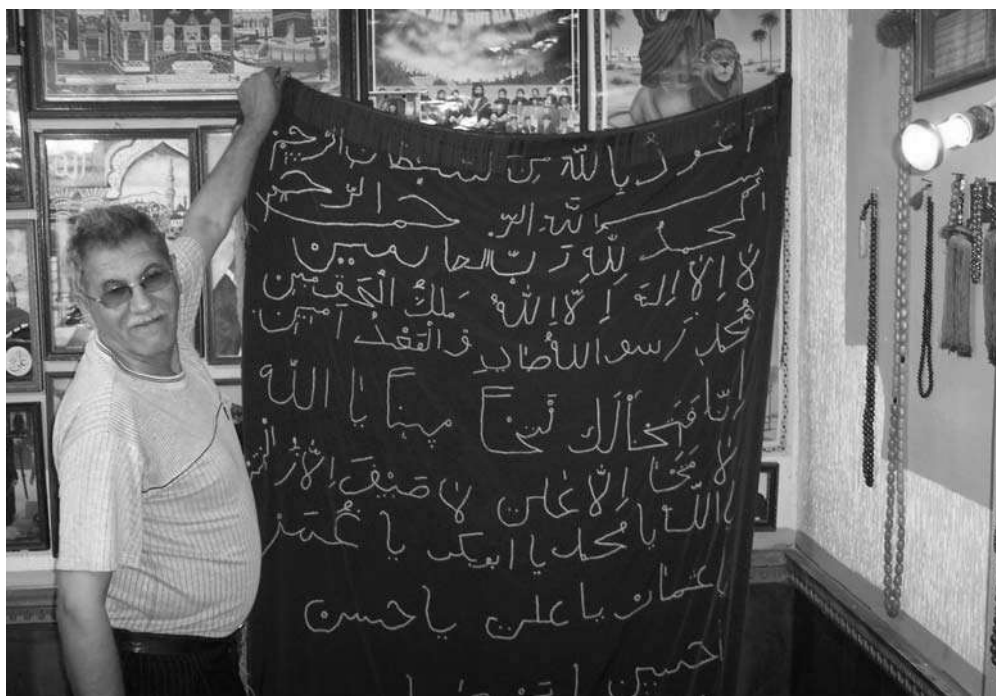 اعوذ بالله من لشيطان الرجيم
بسم الله الرحمن الرحيم
الحمد لله رب العالمين
لا اله الا الله ملك الحق مبين
محمد رسو الله صادق والقعد امين
انا فتحنا لك فتحا مبينا يا الله
لا فتا الا علي لا صيف الا
يا الله يا محمد يا ابوبكر يا عمر
يا عثمان يا علي يا حسن